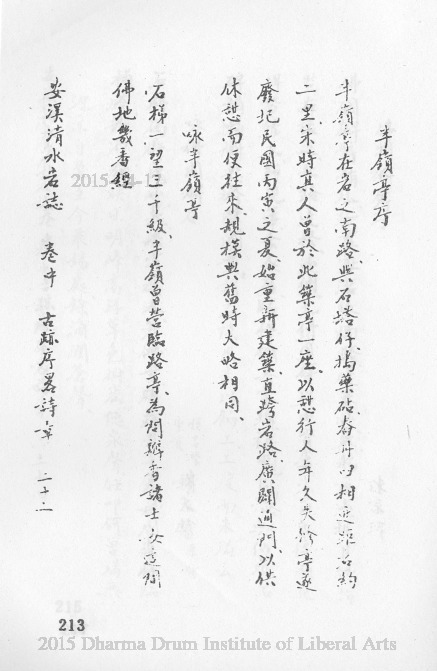 半嶺亭序
半嶺亭在岩之南路、與石塔仔、搗藥砧、舂丹臼相近、距岩約
二里、宋時真人曾於此築亭一座、以憇行人、年久失修、亭遂
廢圮、民國丙寅之夏、始重新建築、直跨岩路、廣闢通門、以供
休憇而便往來、規模與舊時大略相同、
咏半嶺亭
石梯一望三千級、半嶺曾營臨路亭、為問瓣香諸士女、幾聞
佛地幾番經
安溪清水岩誌 卷中 古跡序畧詩章 二十二
213
2015 Dharma Drum Institute of Liberal Arts